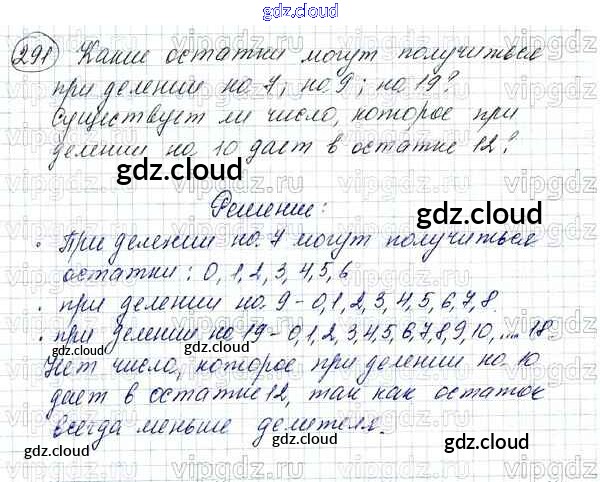 gdz.cloud
291 Какие остатки могут получиться
при делении на 7; на 9; на 19?
Существует ли число, которое при
делении на 10 дает в остатке 12?
gdz.cloud
Решение:
gdz.cloud
• При делении на 7 могут получиться
остатки: 0, 1, 2, 3, 4, 5, 6
• при делении на 9 - 0, 1, 2, 3, 4, 5, 6, 7, 8.
• при делении на 19 - 0, 1, 2, 3, 4, 5, 6, 7, 8, 9, 10, ... 18.
gdz.cloud gdz.cloud
Нет числа, которое при делении на 10
дает в остатке 12, так как остаток
всегда меньше делителя.
gdz.cloud gdz.cloud
vipgdz.ru